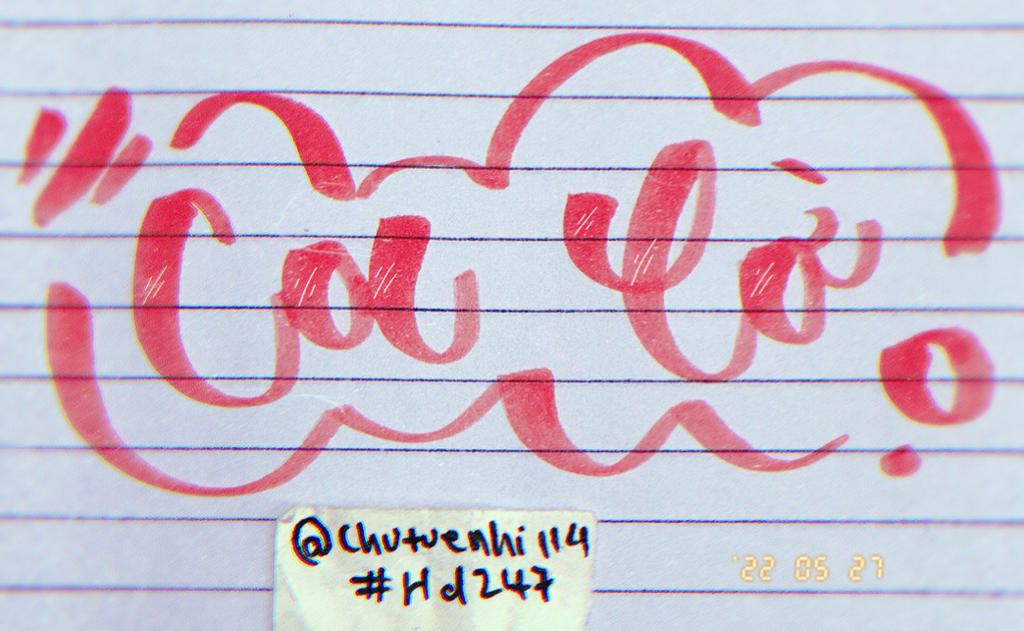 Ca lò
@chutuenhi114
#Hd247
'22 05 27